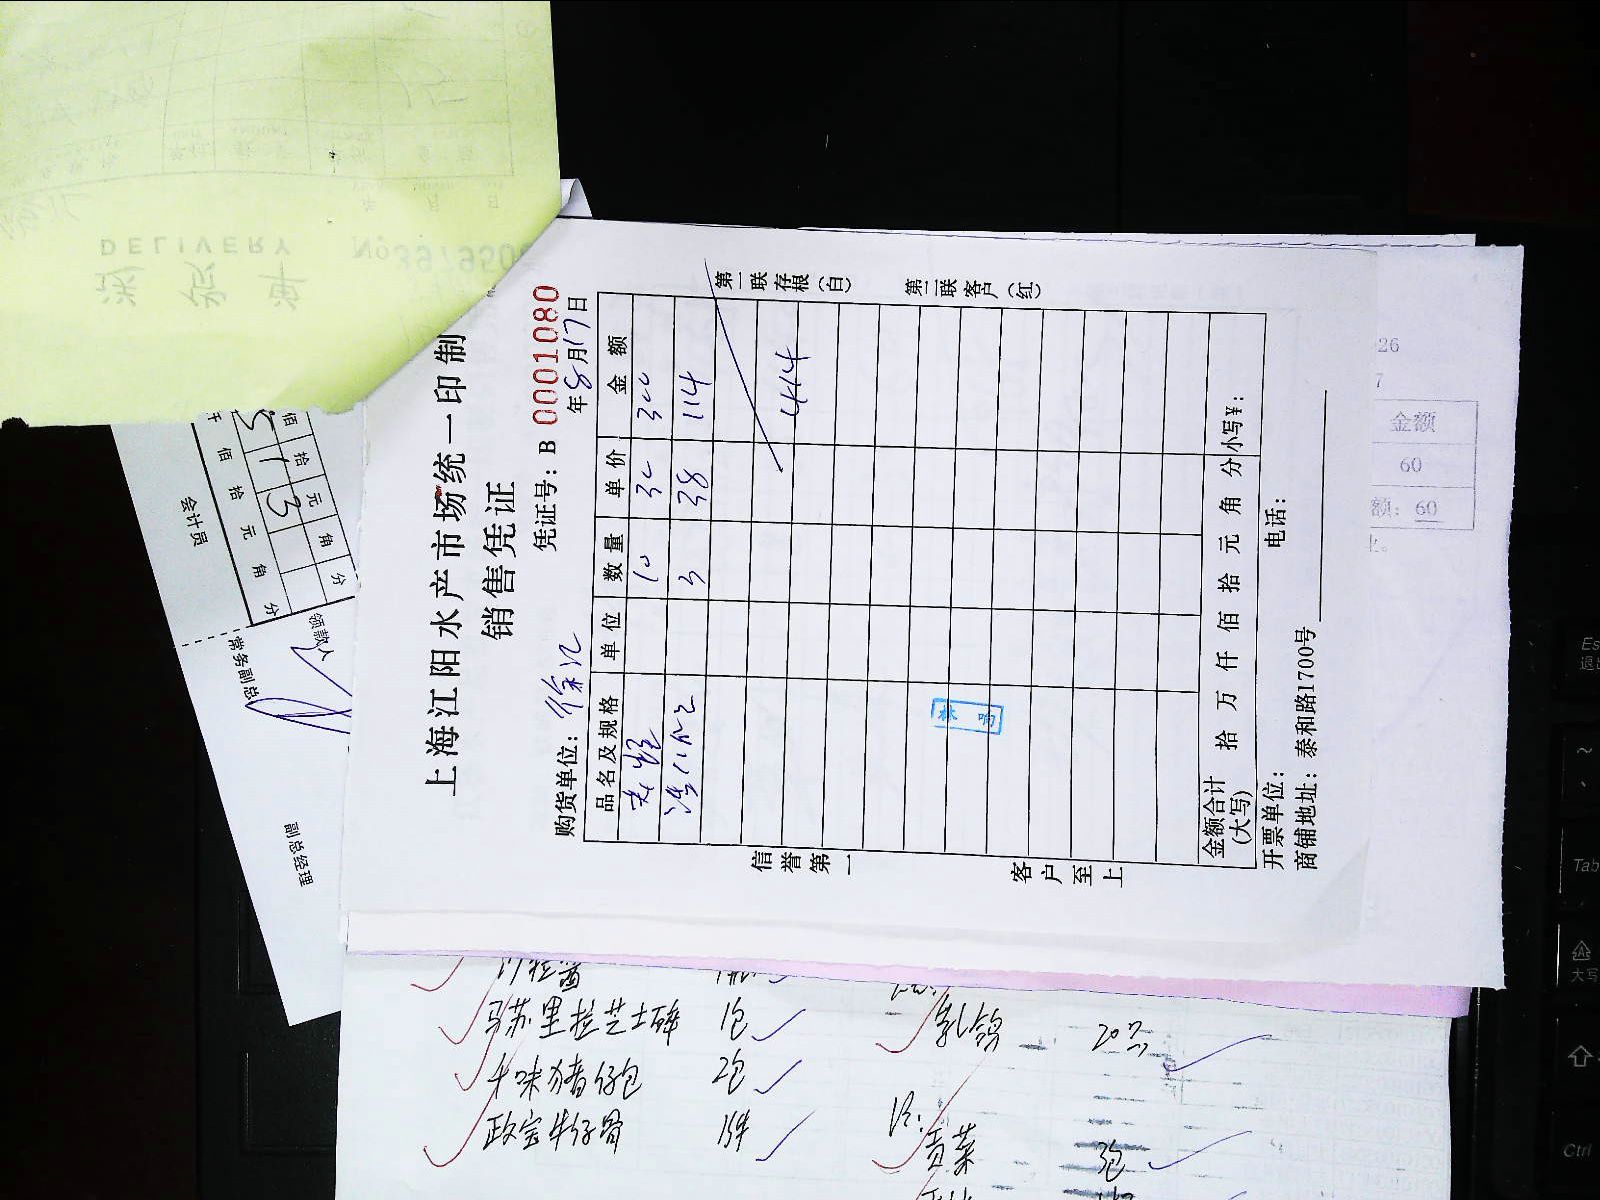 上海江阳水产市场统一印制
销售凭证
凭证号：B 0001080
购货单位：徐汇
年8月17日
品名及规格 单位 数量 单价 金额
10 30 300
3 38 114
414
金额合计（大写） 拾 万 仟 佰 拾 元 角 分 小写¥：
开票单位： 电话：
商铺地址：泰和路1700号
信誉第一 客户至上
第一联存根（白） 第二联客户（红）
林 响
DELIVERY
No3979508
会计员
佰 拾 元 角 分
佰 拾 元 角 分
5 1 3
领款人
常务副总
副总经理
26
7
金额
60
额：60
马苏里拉芝士碎 1包
千味猪仔包 2包
政宝牛仔骨 1件
乳鸽 20只
贡菜 3包
Tab
大写
Ctrl